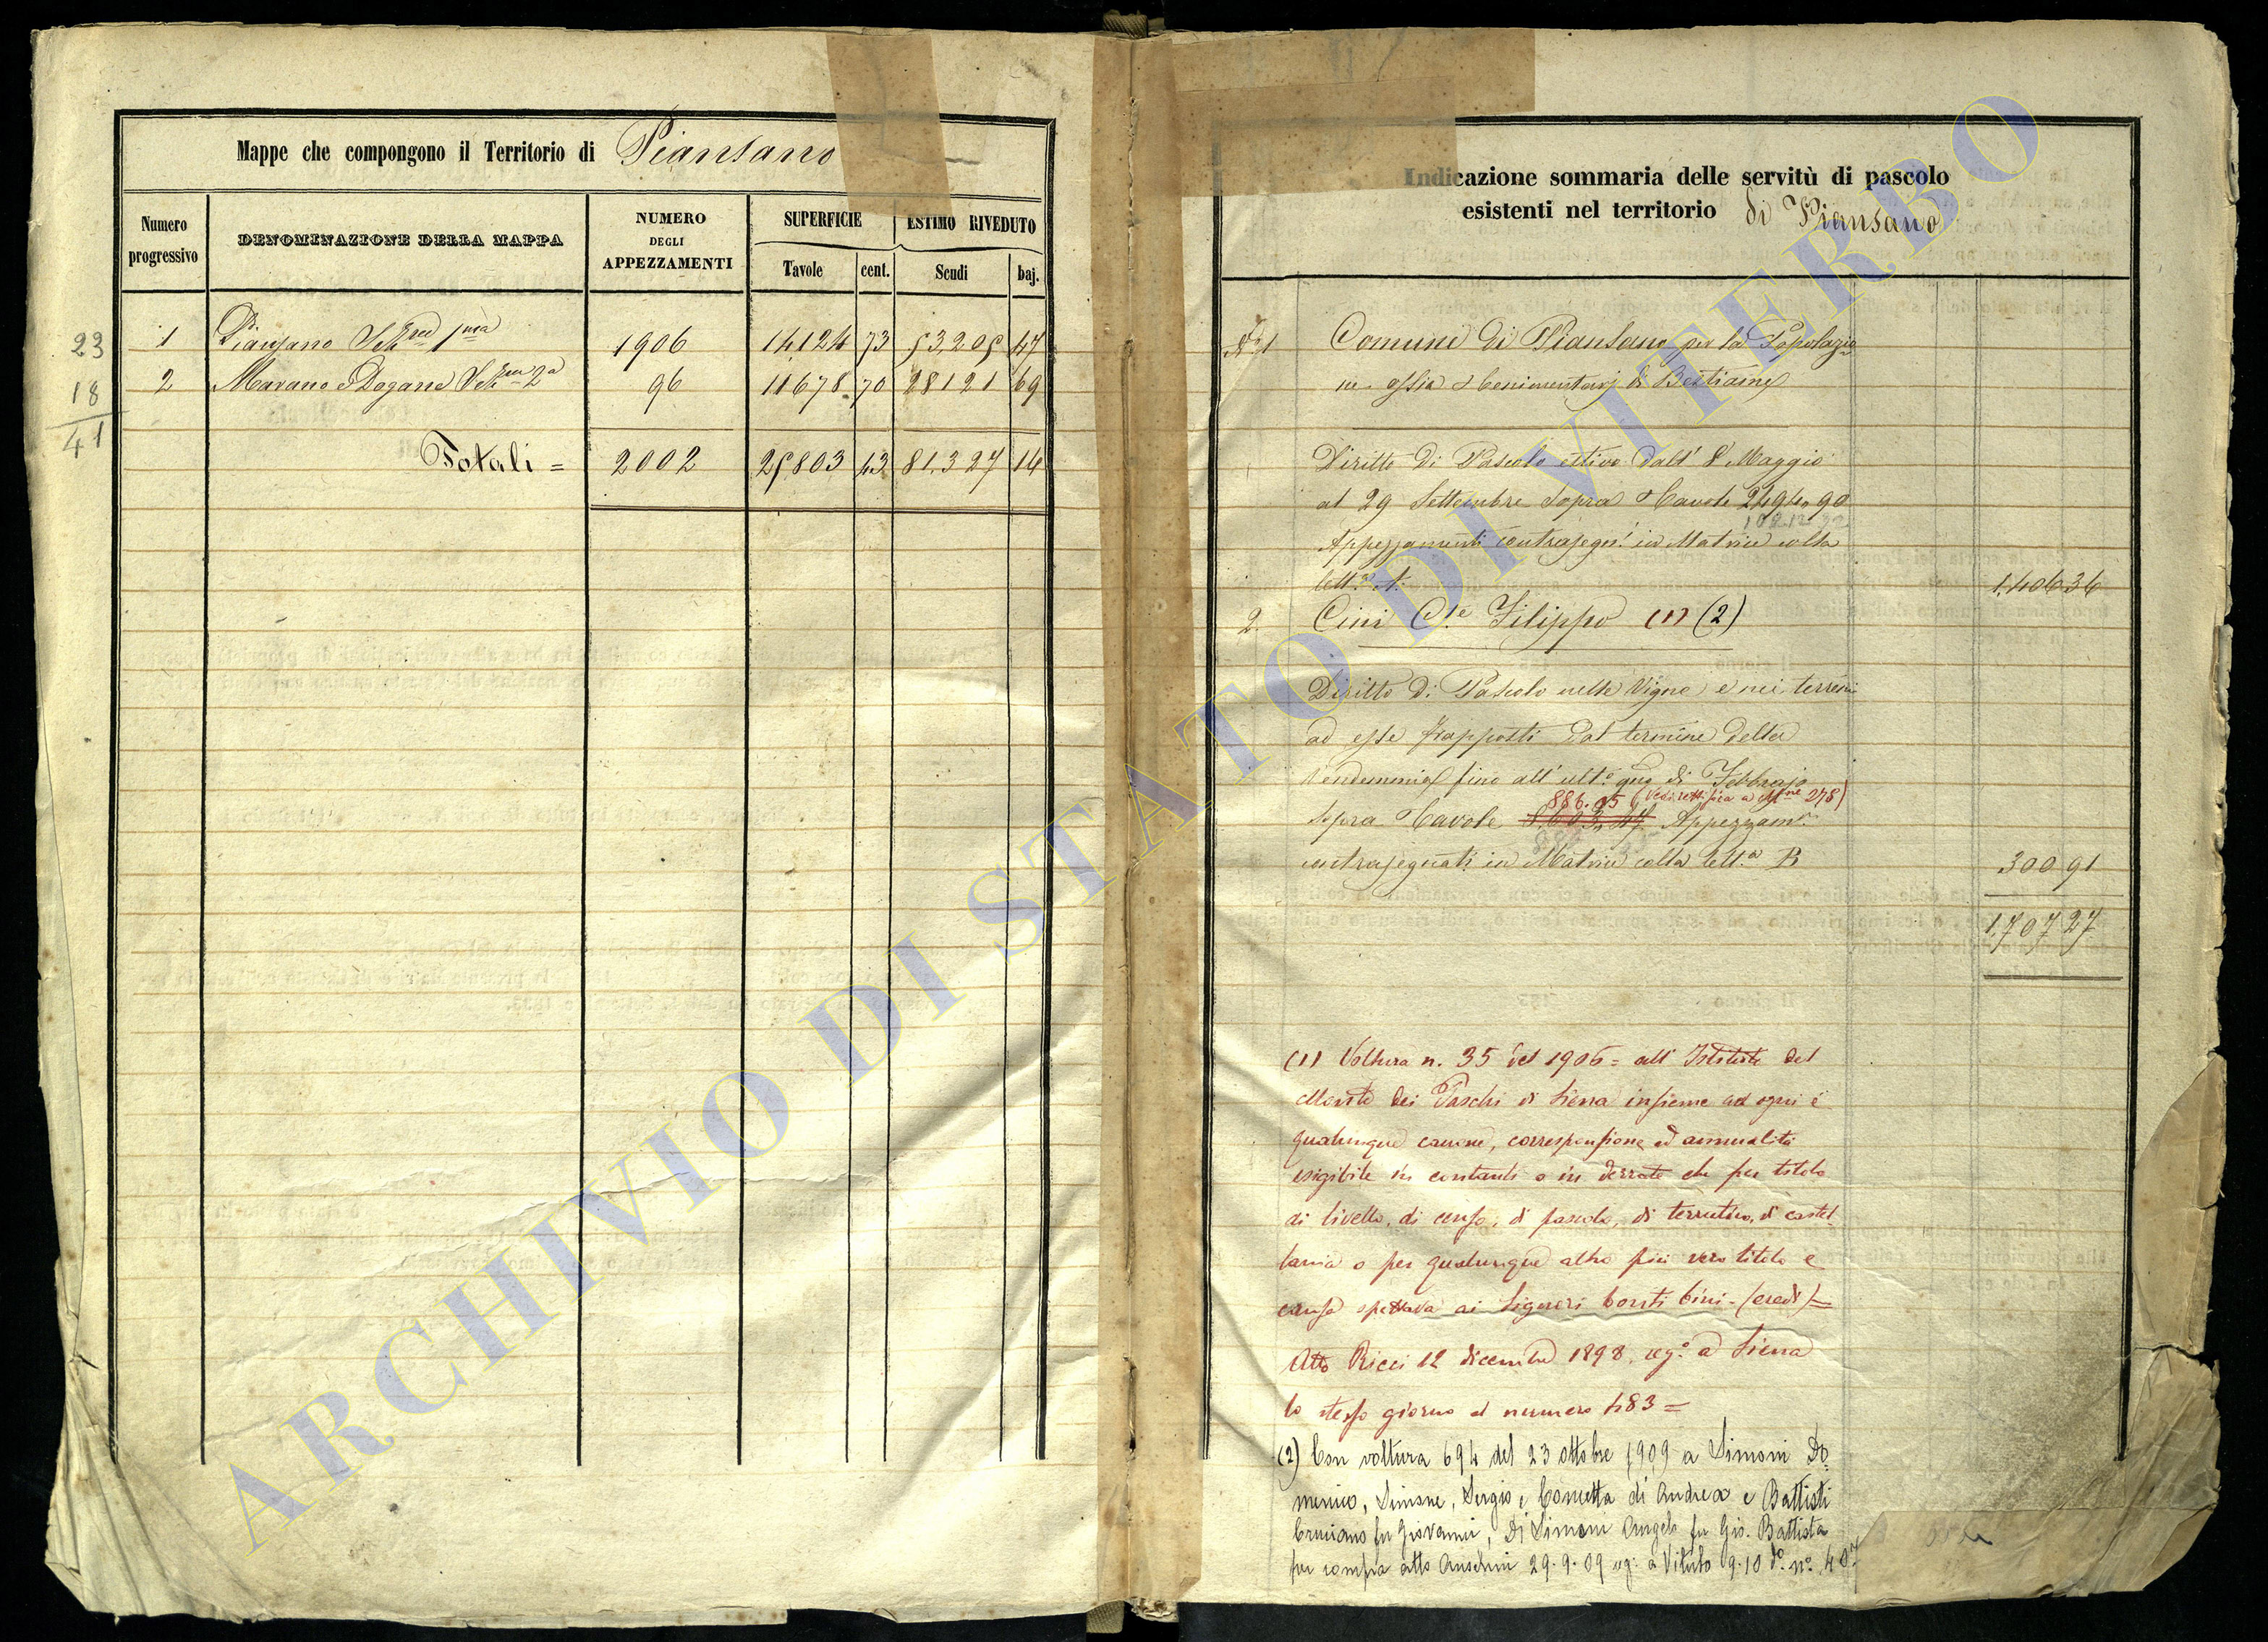 Mappe che compongono il Territorio di Piansano
Numero progressivo
DENOMINAZIONE DELLA MAPPA
NUMERO DEGLI APPEZZAMENTI
SUPERFICIE
ESTIMO RIVEDUTO
Tavole
cent.
Scudi
baj.
23
1 Piansano Sez.ne 1ma 1906 14124 73 53,205 47
18
2 Marano e Dogane Sez.ne 2a 96 11678 70 28121 69
41
Totali = 2002 25803 43 81,327 14
Indicazione sommaria delle servitù di pascolo
esistenti nel territorio di Piansano
No 1 Comune di Piansano per la Popolazio
ne ossia
di Bestiame
Diritto di Pascolo estivo dall' 8 Maggio
al 29 Settembre sopra Tavole 2494,90
Appezzamenti contrasegn.i in Matrice colla
lett.a A. 1,406 36
2. Cini C.te Filippo (1) (2)
Diritto di Pascolo nelle Vigne e nei terreni
ad esse frapposti dal termine della
Vendemmia fino all' ult.o gno di Febbrajo
886.05 (Vedi rettifica a M.ne 278)
sopra Tavole Appezzam.ti
contrasegnati in Matrice colla lett.a B 300 91
1,707 27
(1) Voltura n. 35 del 1906 = all' Istituto del
Monte dei Paschi di Siena insieme ad ogni e
qualunque canone, corresponsione ed annualità
esigibile in contanti o in derrate che per titolo
di livello, di censo, di pascolo, di terratico, di castel-
lania o per qualunque altro più vero titolo e
causa spettava ai Signori Conti Cini - (eredi) =
Atto Ricci 12 dicembre 1898, reg.o a Siena
lo stesso giorno al numero 483 =
(2) Con voltura 694 del 23 ottobre 1909 a Simoni Do
menico, Simone, Sergio e Concetta di Andrea e Battisti
Cruciano fu Giovanni, Di Simoni Angelo fu Gio. Battista
per compra atto Anselmi 29.9.09 reg. a Viterbo 9.10 do. no.
ARCHIVIO DI STATO DI VITERBO